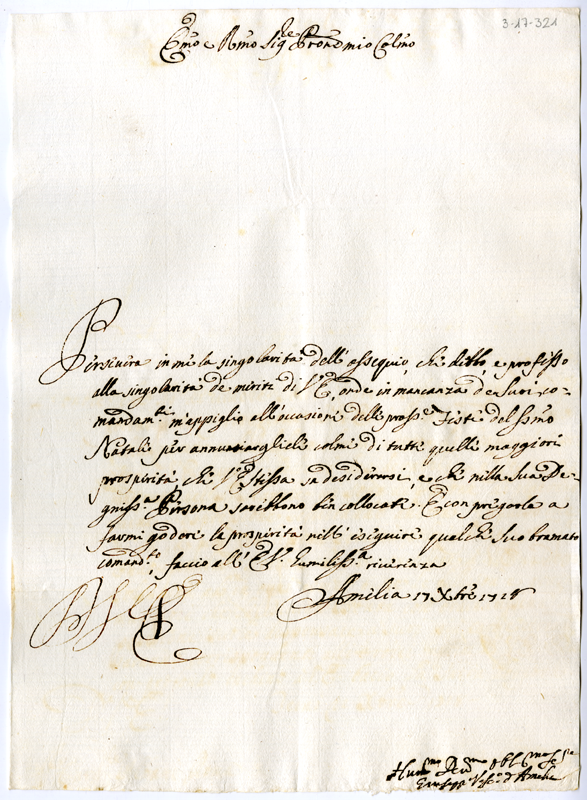 3-17-321
Em̃o e Rmo Sig.re P̃ron mio Colmo
Persevera in me la singolarità dell'ossequio che debbo, e professo
alla singolarità de meriti di V.E, onde in mancanza de suoi co-
mandam.ti m'appiglio all'occasione delle pross.e Feste del S.mo
Natale per annunciargliele colme di tutte quelle maggiori
prosperità, che l'E stessa sa desiderarsi, e che nella sua De-
gniss.a Persona sarebbono ben collocate. E con pregarla a
farmi godere la prosperità nell'eseguire qualche suo bramato
comand.to, faccio all'E V. humiliss.a riverenza
Amelia 17 Xbre
Hum.mo Dev.mo Obl.mo Se
Giuseppe Vesc.o d'Amelia